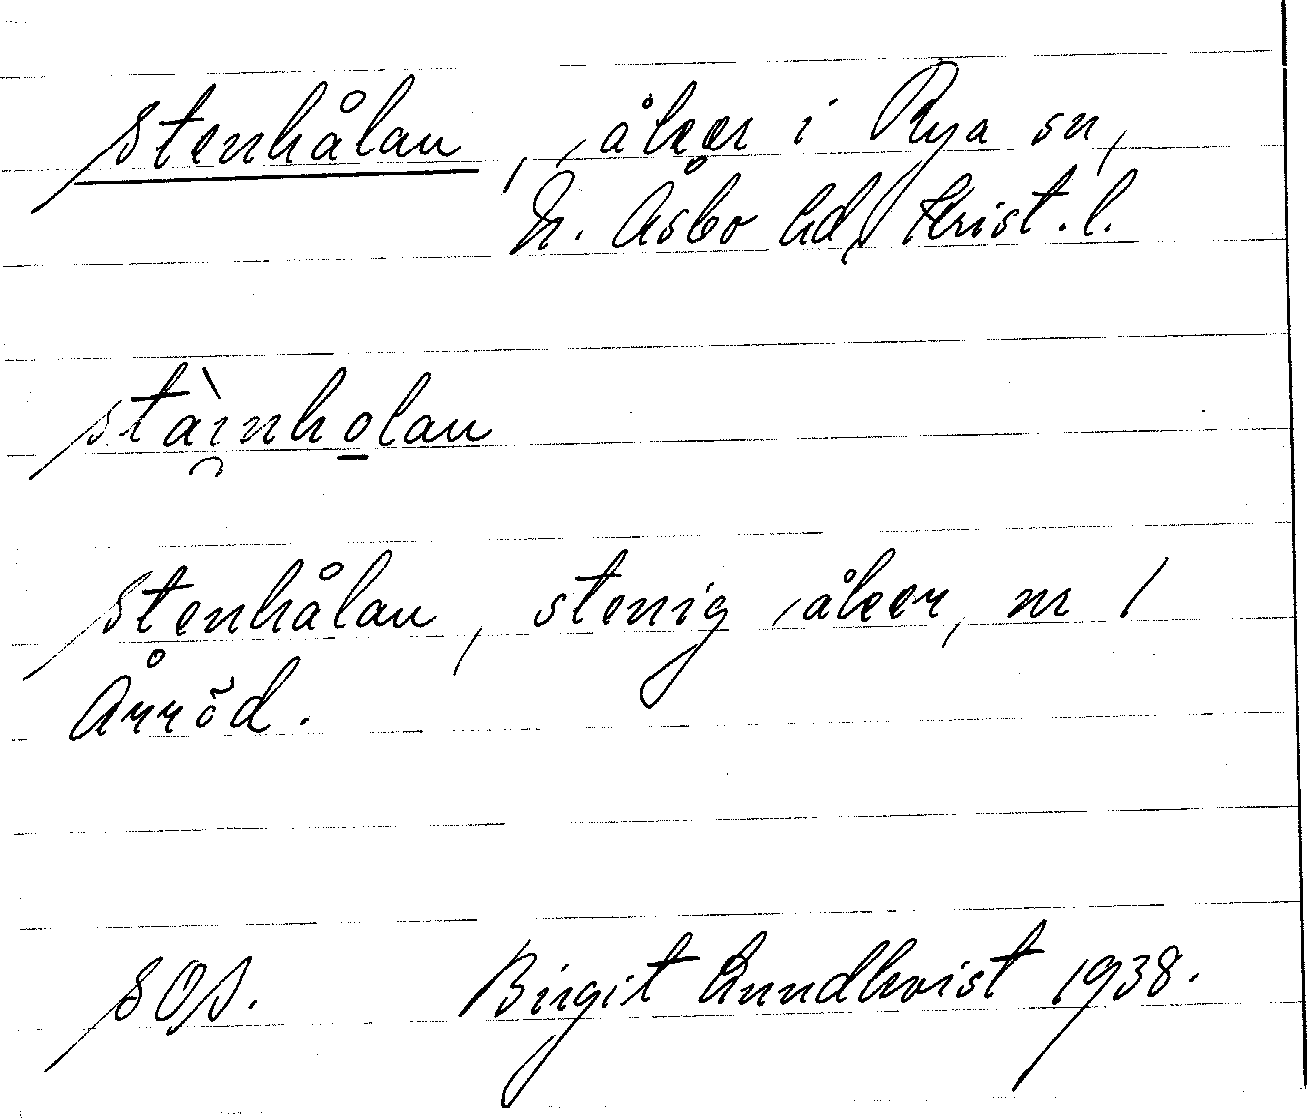 Stenhålan, åker i Rya sn,
N. Åsbo hd, Krist. l.
stài̯nho̲lan
Stenhålan, stenig åker, nr 1
Årröd.
SOS. Birgit Lundkvist 1938.